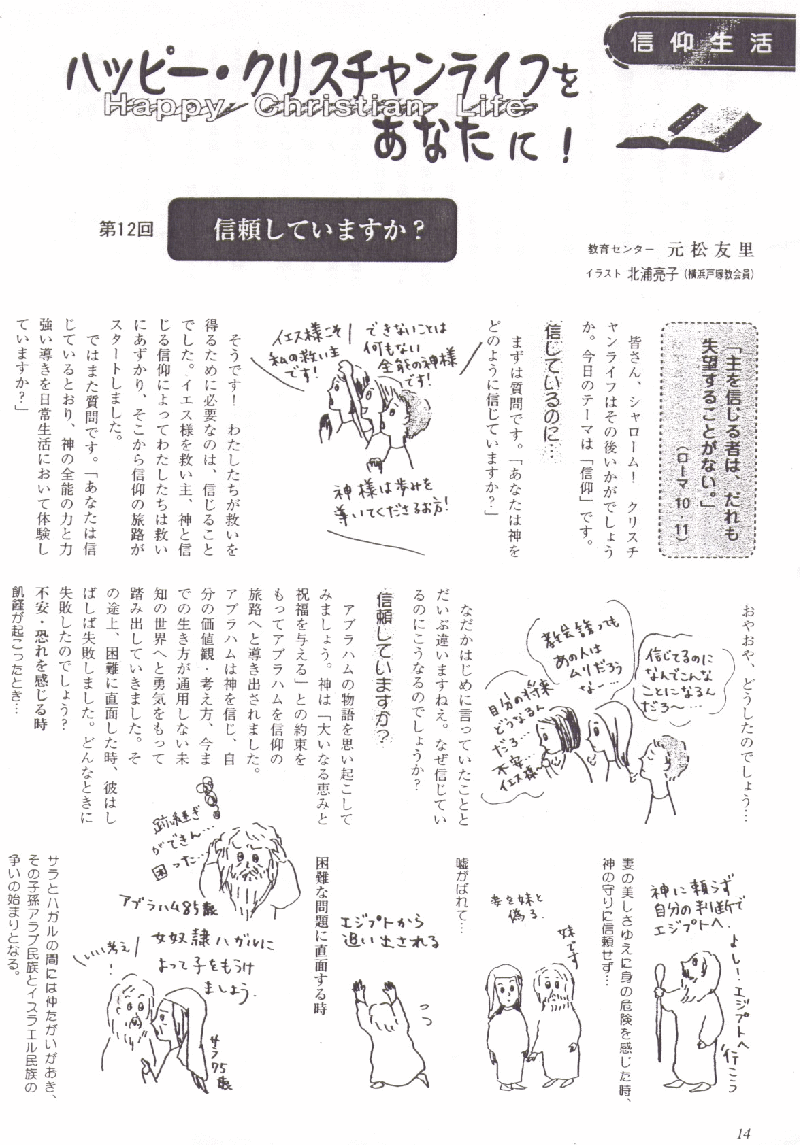 信仰生活
ハッピー・クリスチャンライフを
Happy Christian Life
あなたに！
第12回
信頼していますか？
教育センター 元松友里
イラスト 北浦亮子（横浜戸塚教会員）
「主を信じる者は、だれも
失望することがない。」
（ローマ 10 11）
皆さん、シャローム！ クリスチ
ャンライフはその後いかがでしょう
か。今日のテーマは「信仰」です。
信じているのに…
まずは質問です。「あなたは神を
どのように信じていますか？」
できないことは
何もない
全能の神様
です！
イエス様こそ
私の救い主
です！
神様は歩みを
導いてくださるお方！
そうです！ わたしたちが救いを
得るために必要なのは、信じること
でした。イエス様を救い主、神と信
じる信仰によってわたしたちは救い
にあずかり、そこから信仰の旅路が
スタートしました。
ではまた質問です。「あなたは信
じているとおり、神の全能の力と力
強い導きを日常生活において体験し
ていますか？」
おやおや、どうしたのでしょう…
信じてるのに
なんでこんな
ことになるん
だろ〜…
教会誘っても
あの人は
ムリだろう
なー…
自分の将来
どうなるん
だろ…
不安…
イエス様〜
なだかはじめに言っていたことと
だいぶ違いますねえ。なぜ信じてい
るのにこうなるのでしょうか？
信頼していますか？
アブラハムの物語を思い起こして
みましょう。神は「大いなる恵みと
祝福を与える」との約束を
もってアブラハムを信仰の
旅路へと導き出されました。
アブラハムは神を信じ、自
分の価値観・考え方、今ま
での生き方が通用しない未
知の世界へと勇気をもって
踏み出していきました。そ
の途上、困難に直面した時、彼はし
ばしば失敗しました。どんなときに
失敗したのでしょう？
不安・恐れを感じる時
飢饉が起こったとき…
神に頼らず
自分の判断で
エジプトへ
よし！エジプトへ
行こう
妻の美しさゆえに身の危険を感じた時、
神の守りに信頼せず…
妻を妹と
偽る
妹です
嘘がばれて…
エジプトから
追い出される
困難な問題に直面する時
跡継ぎ
ができん…
困った…
アブラハム85歳
女奴隷ハガルに
よって子をもうけ
ましょう
いい考え！
サラ75歳
サラとハガルの間には仲たがいがおき、
その子孫アラブ民族とイスラエル民族の
争いの始まりとなる。
14